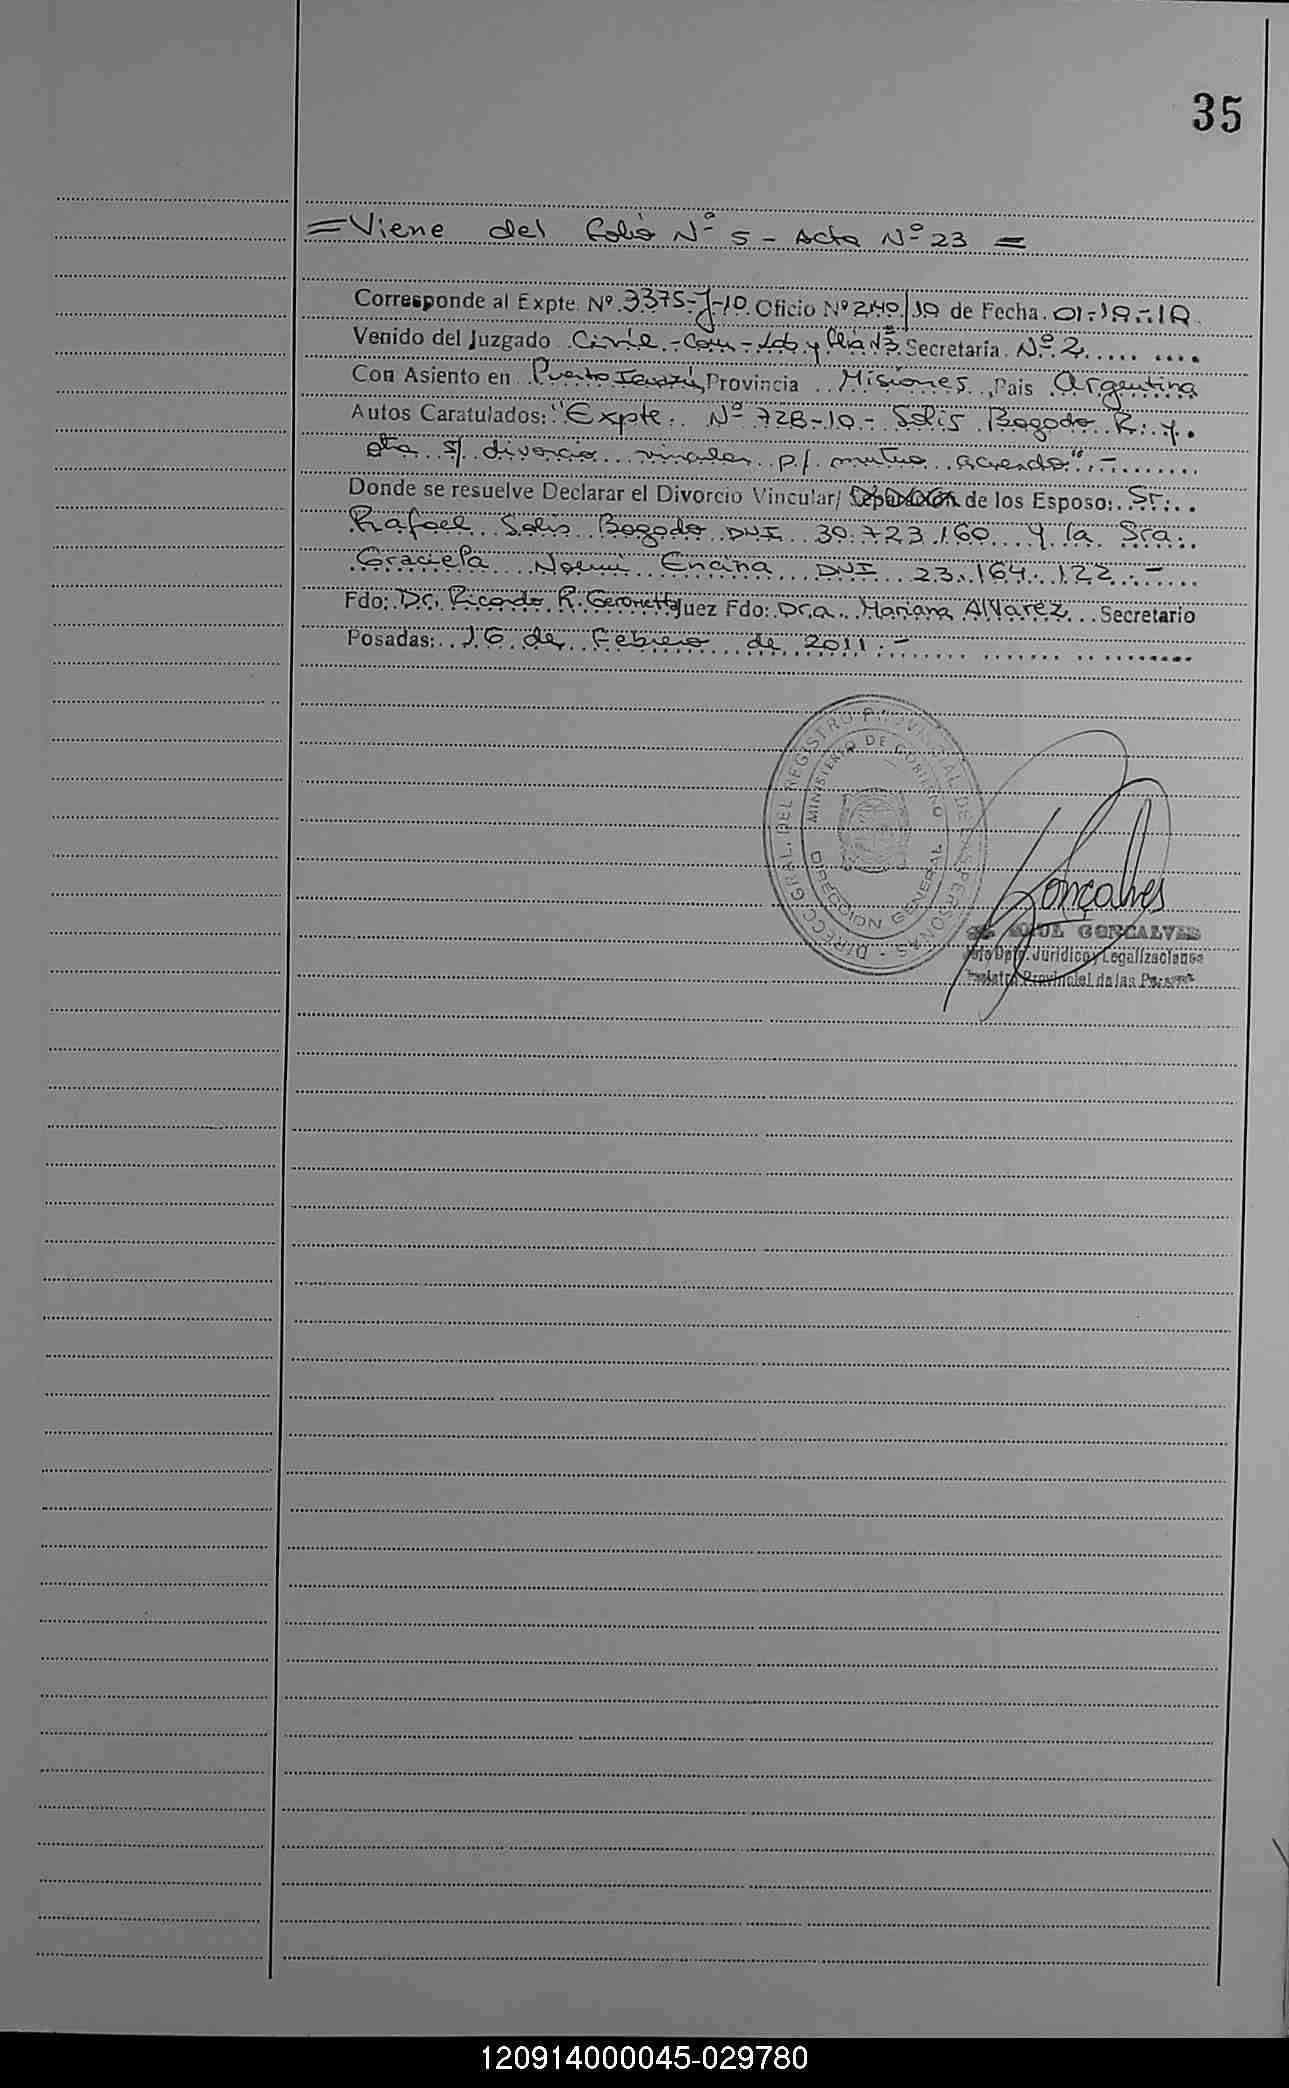 35
= Viene del folio Nº 5 - Acta Nº 23 =
Corresponde al Expte. Nº 3375-J-10. Oficio Nº 2140/10 de Fecha. 01-10-10.
Venido del Juzgado Civil - Com - Lab y Flia Nº3 Secretaria. Nº 2.........
Con Asiento en Puerto Iguazú, Provincia Misiones, Pais Argentina
Autos Caratulados: "Expte. Nº 728-10 - Solis Bogado R. y.
otra s/ divorcio vincular p/ mutuo acuerdo". -
Donde se resuelve Declarar el Divorcio Vincular/ Separación de los Esposo: Sr.
Rafael Solis Bogado DNI 30.723.160 y la Sra.
Graciela Noemi Encina DNI 23.164.122. -
Fdo: Dr. Ricardo R. Geronetti Juez Fdo: Dra. Mariana Alvarez Secretario
Posadas: 16 de Febrero de 2011. -
DIRECC. GRAL. DEL REGISTRO PROVINCIAL DE LAS PERSONAS -
MINISTERIO DE GOBIERNO
DIRECCION GENERAL
Gonçalves
GONCALVES
Jefe Dpto. Jurídico y Legalizaciones
Registro Provincial de las Personas
120914000045-029780